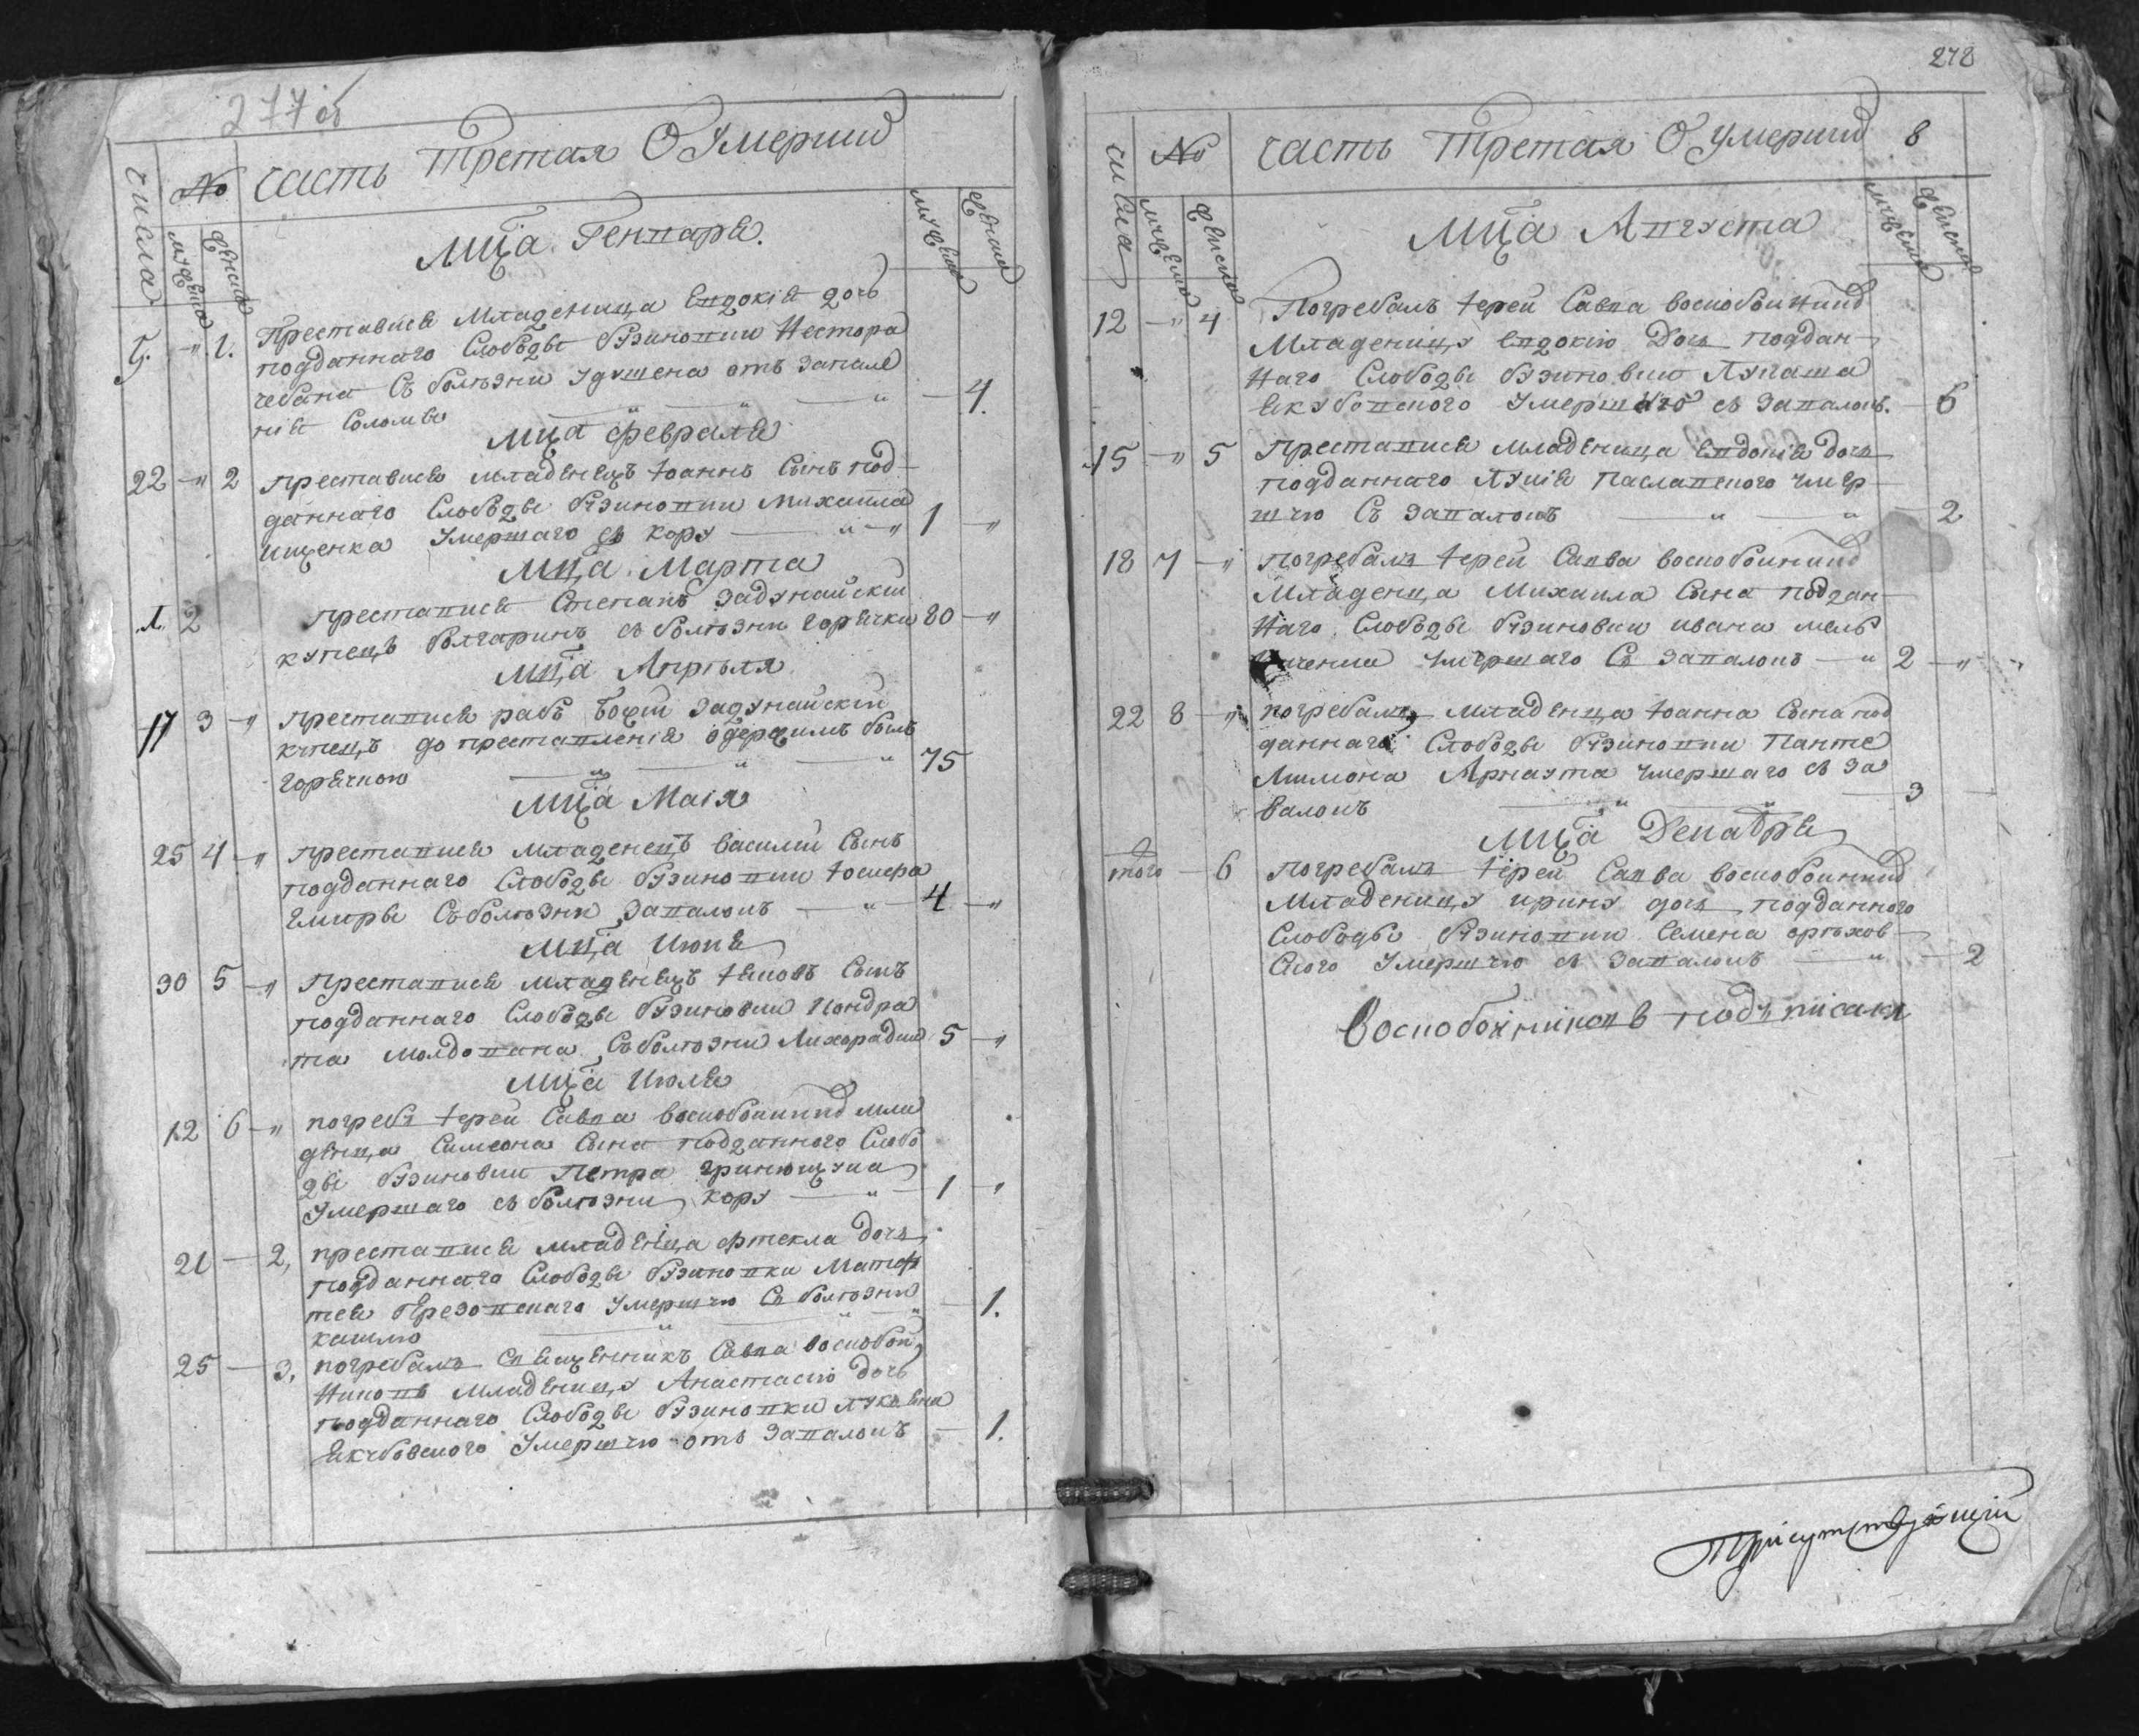 277 об
числа № часть Третая О Умерших
мужеска женска мужеска женска
Мца Генваря.
5. " 1. Преставися Младеница Евдокія дочь
подданнаго Слободы Бузиновки Нестора
чебана Съ болѣзни удушена отъ запале
нія соломы " " " 4.
Мца февраля
22 " 2 преставися младенецъ Іоаннъ Сынъ под
даннаго Слободы Бузиновки Михаила
ищенка Умершаго съ кору " " 1 "
Мца Марта
2 преставися Степанъ задунайскій
купецъ болгаринъ съ болѣзни горячки 80 "
Мца Апрѣля
17 3 " преставися рабъ божій задунайскій
купецъ до преставленія одержимъ былъ
горячкою " " " 75
Мца Маія
25 4 " преставися младенецъ василій Сынъ
подданнаго Слободы Бузиновки Іосифа
Съ болѣзни завалокъ " 4 "
Мца Июня
30 5 " Преставися младенецъ Сынъ
подданнаго Слободы Бузиновки Кондра
та молдована Съ болѣзни Лихорадки 5 "
Мца Июля
12 6 " погребъ Іерей Савва воскобойник мла
денца Симеона Сына подданнаго Слобо
ды Бузиновки Петра
Умершаго съ болѣзни кору " 1 "
21 2, преставися младеница фтекла дочь
подданнаго Слободы Бузиновки Матф
тея Умершую Съ болѣзни
кашлю " " " 1.
25 3, погребалъ Священникъ Савва воскобой
никовъ младеницу Анастасію дочь
подданнаго Слободы Бузиновки
Якубовского Умершую отъ завалокъ 1.
278
числа № часть Третая О Умерших 8
мужеска женска мужеска женска
Мца Августа
12 " 4 Погребалъ Іерей Савва воскобойник
Младеницу Евдокію Дочь поддан
наго Слободы Бузиновки Лукаша
Якубовского Умершую съ завалокъ. 6
15 " 5 преставися младеница Евдокія дочь
подданнаго Паславского умер
шую Съ завалокъ " " 2
18 7 " погребалъ Іерей Савва воскобойник
Младенца Михаила Сына поддан
наго Слободы Бузиновки ивана мель
умершаго Съ завалокъ " 2 "
22 8 " погребалъ младенца Іоанна Сына под
даннаго Слободы Бузиновки Панте
лимона Арнаута умершаго съ за
валокъ " " 3
Мца Декабря
того 6 погребалъ Іерей Савва воскобойник
Младеницу ирину дочь подданного
Слободы Бузиновки Семена орѣхов
ского Умершую съ завалокъ " 2
Воскобойниковъ подъписалъ
Присутствующій